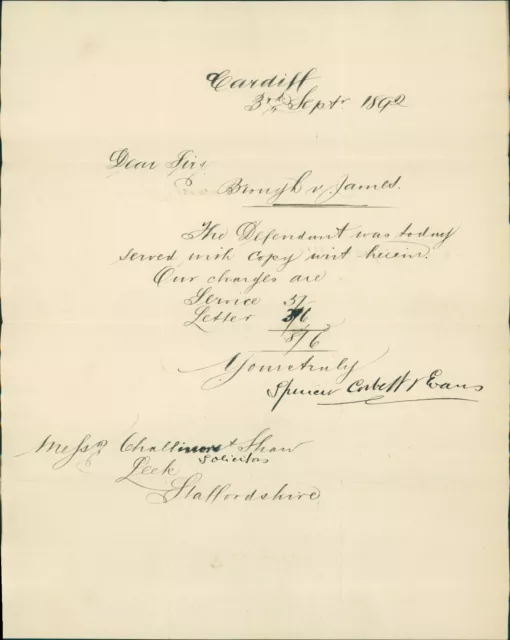 Cardiff
3rd Septr 1892
Dear Sirs
Brough v. James.
The Defendant was today
served with copy writ herein.
Our charges are
Service 5/-
Letter 3/6
8/6
Yours truly
Spencer Corbett & Evans
Messrs Challinors & Shaw
Solicitors
Leek
Staffordshire